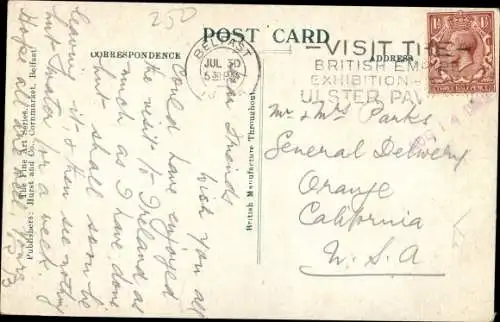 250
POST CARD
CORRESPONDENCE
ADDRESS
BELFAST
JUL 30
5 30 PM
VISIT THE
BRITISH EMPIRE
EXHIBITION
ULSTER PAV
Dear Friends
Wish you all
Could have enjoyed
the visit to Ireland as
much as I have done
but shall soon be
leaving it, & then see nothing
but water for a week.
Hope all are well. Yours
Mr & Mrs Parks
General Delivery
Orange
California
U.S.A
British Manufacture Throughout
The Fine Art Series.
Publishers: Hurst and Co., Cornmarket, Belfast